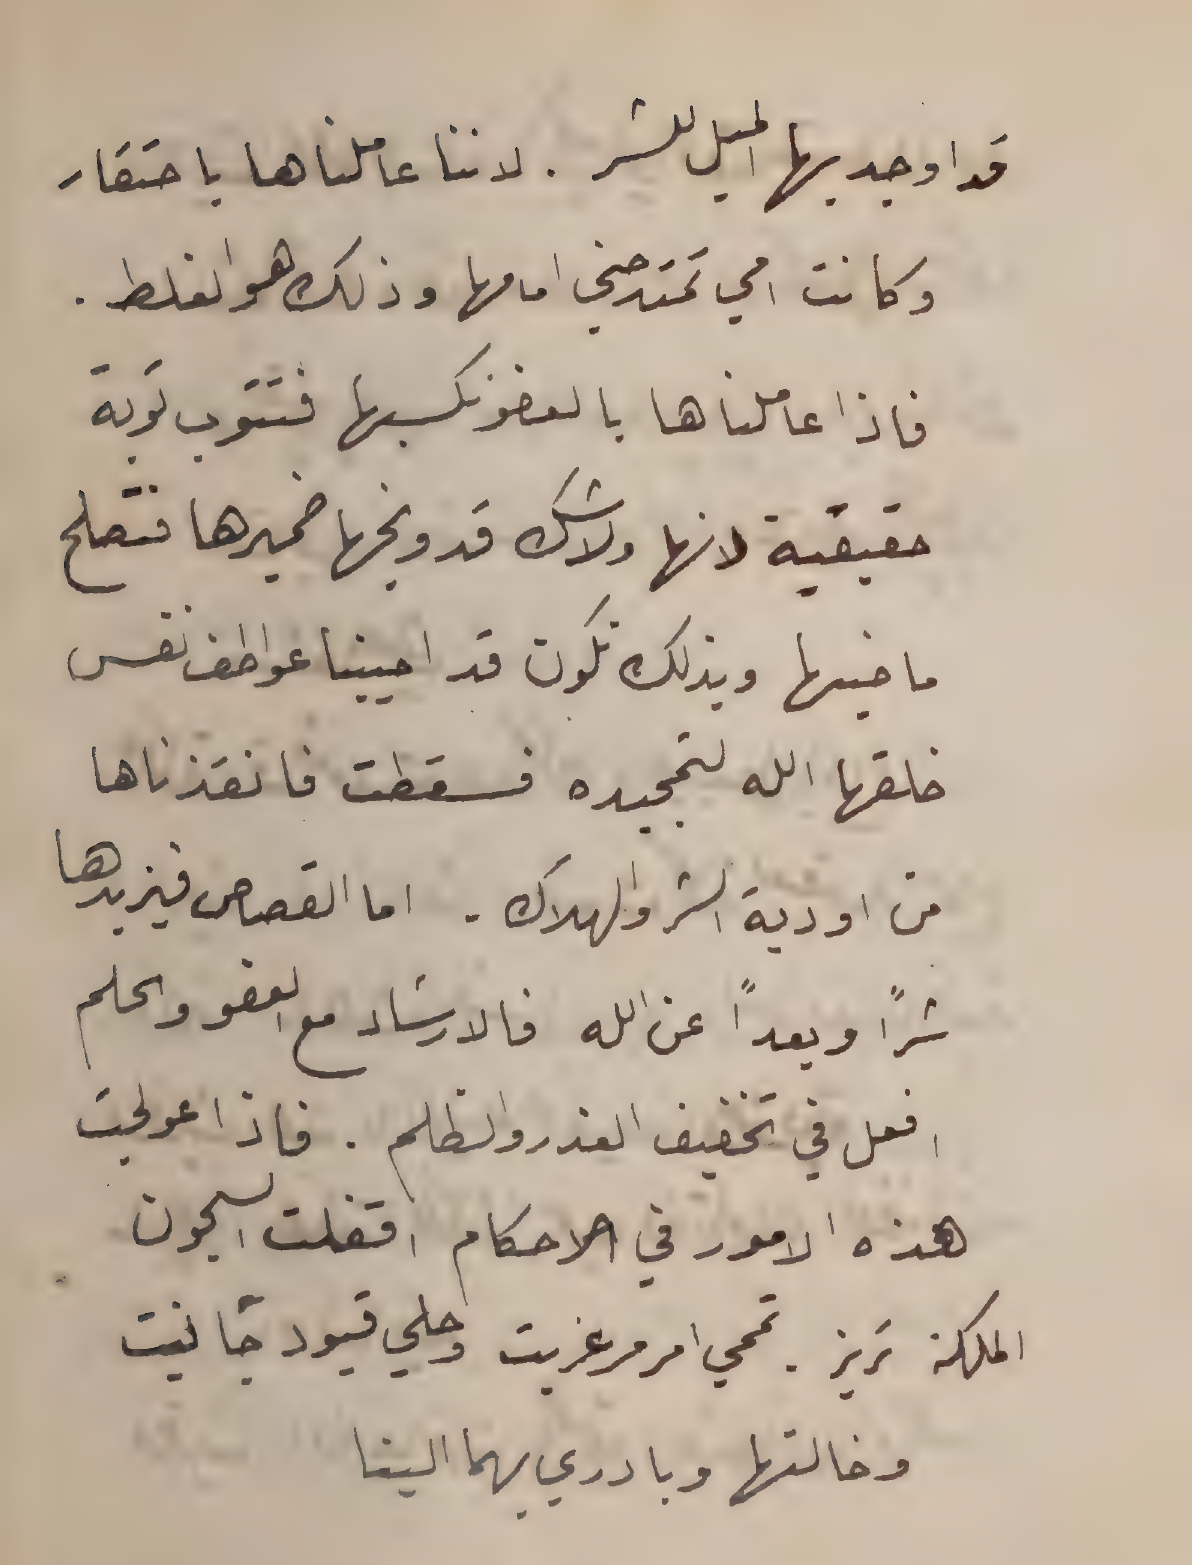 قد اوجد بها الميل للشر . لاننا عاملناها باحتقار
وكانت امي تمتدحني امامها وذلك هو الغلط .
فاذا عاملناها بالعفو نكسبها فتتوب توبة
حقيقية لانها ولاشك قد وبخها ضميرها فتصلح
ماضيها وبذلك نكون قد احيينا عواطف نفس
خلقها الله لتمجيده فسقطت فانقذناها
من اودية الشر والهلاك . اما القصاص فيزيدها
شراً وبعداً عن الله فالارشاد مع العفو والحلم
افعل في تخفيف الغدر والظلم . فاذا عولجت
هذه الامور في الاحكام اقفلت السجون
الملكة تريز . تممي امر مرغريت وحلي قيود جانيت
وخالتها وبادري بهما الينا